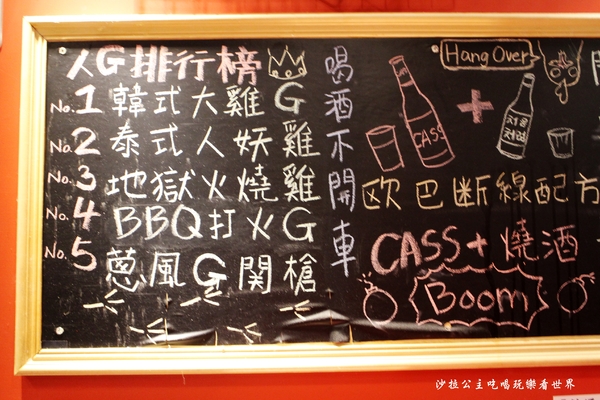 人G排行榜
No.1 韓式大雞G
No.2 泰式人妖雞
No.3 地獄火燒雞
No.4 BBQ打火G
No.5 蔥風G関槍
喝酒不開車
Hang Over
CASS
+
처음처럼
欧巴断線配方
CASS+燒酒
Boom
沙拉公主吃喝玩樂看世界